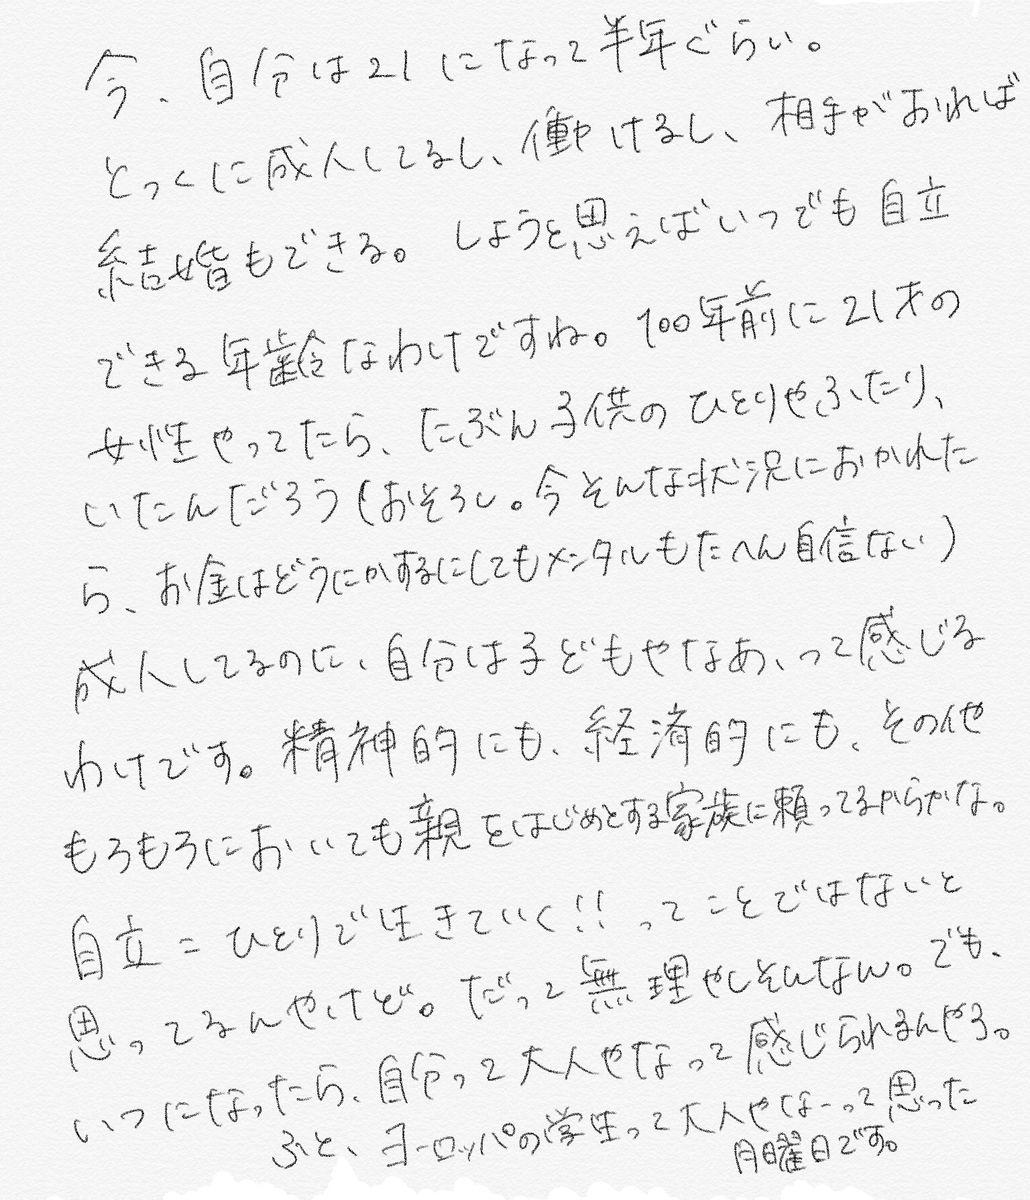 今、自分は21になって半年ぐらい。
とっくに成人してるし、働けるし、相手がおれば
結婚もできる。しようと思えばいつでも自立
できる年齢なわけですね。100年前に21才の
女性やってたら、たぶん子供のひとりやふたり、
いたんだろう(おそろし。今そんな状況におかれた
ら、お金はどうにかするにしてもメンタルもたへん自信ない)
成人してるのに、自分は子どもやなあ、って感じる
わけです。精神的にも、経済的にも、その他
もろもろにおいても親をはじめとする家族に頼ってるからかな。
自立=ひとりで生きていく!!ってことではないと
思ってるんやけど。だって無理やしそんなん。でも、
いつになったら、自分って大人やなって感じられるんやろ。
ふと、ヨーロッパの学生って大人やなーって思った
月曜日です。